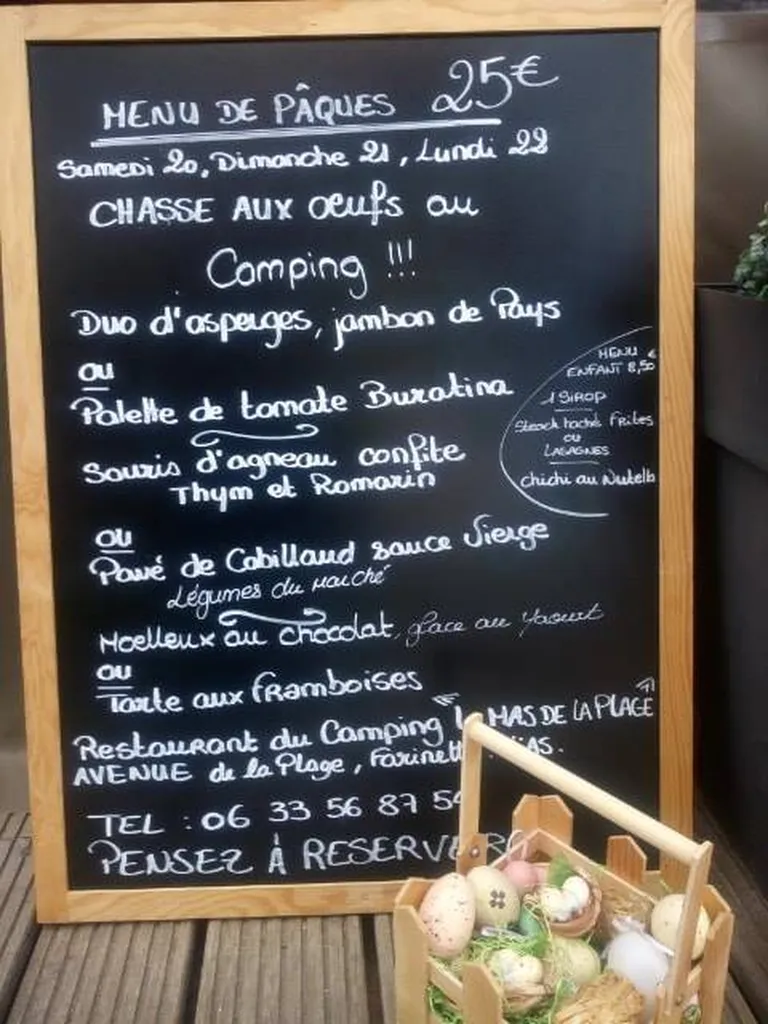 MENU DE PÂQUES 25€
Samedi 20, Dimanche 21, Lundi 22
CHASSE AUX Oeufs au
Camping !!!
Duo d'asperges, jambon de Pays
ou
Palette de tomate Buratina
Souris d'agneau confite
Thym et Romarin
ou
Pavé de Cabillaud sauce Vierge
Légumes du marché
Moelleux au chocolat, glace au Yaourt
ou
Tarte aux framboises
Restaurant du Camping "MAS DE LA PLAGE"
AVENUE de la Plage,
TEL : 06 33 56 87
PENSEZ À RESERVER
MENU €
ENFANT 8,50
1 SIROP
Steack haché Frites
ou
LASAGNES
chichi au Nutella